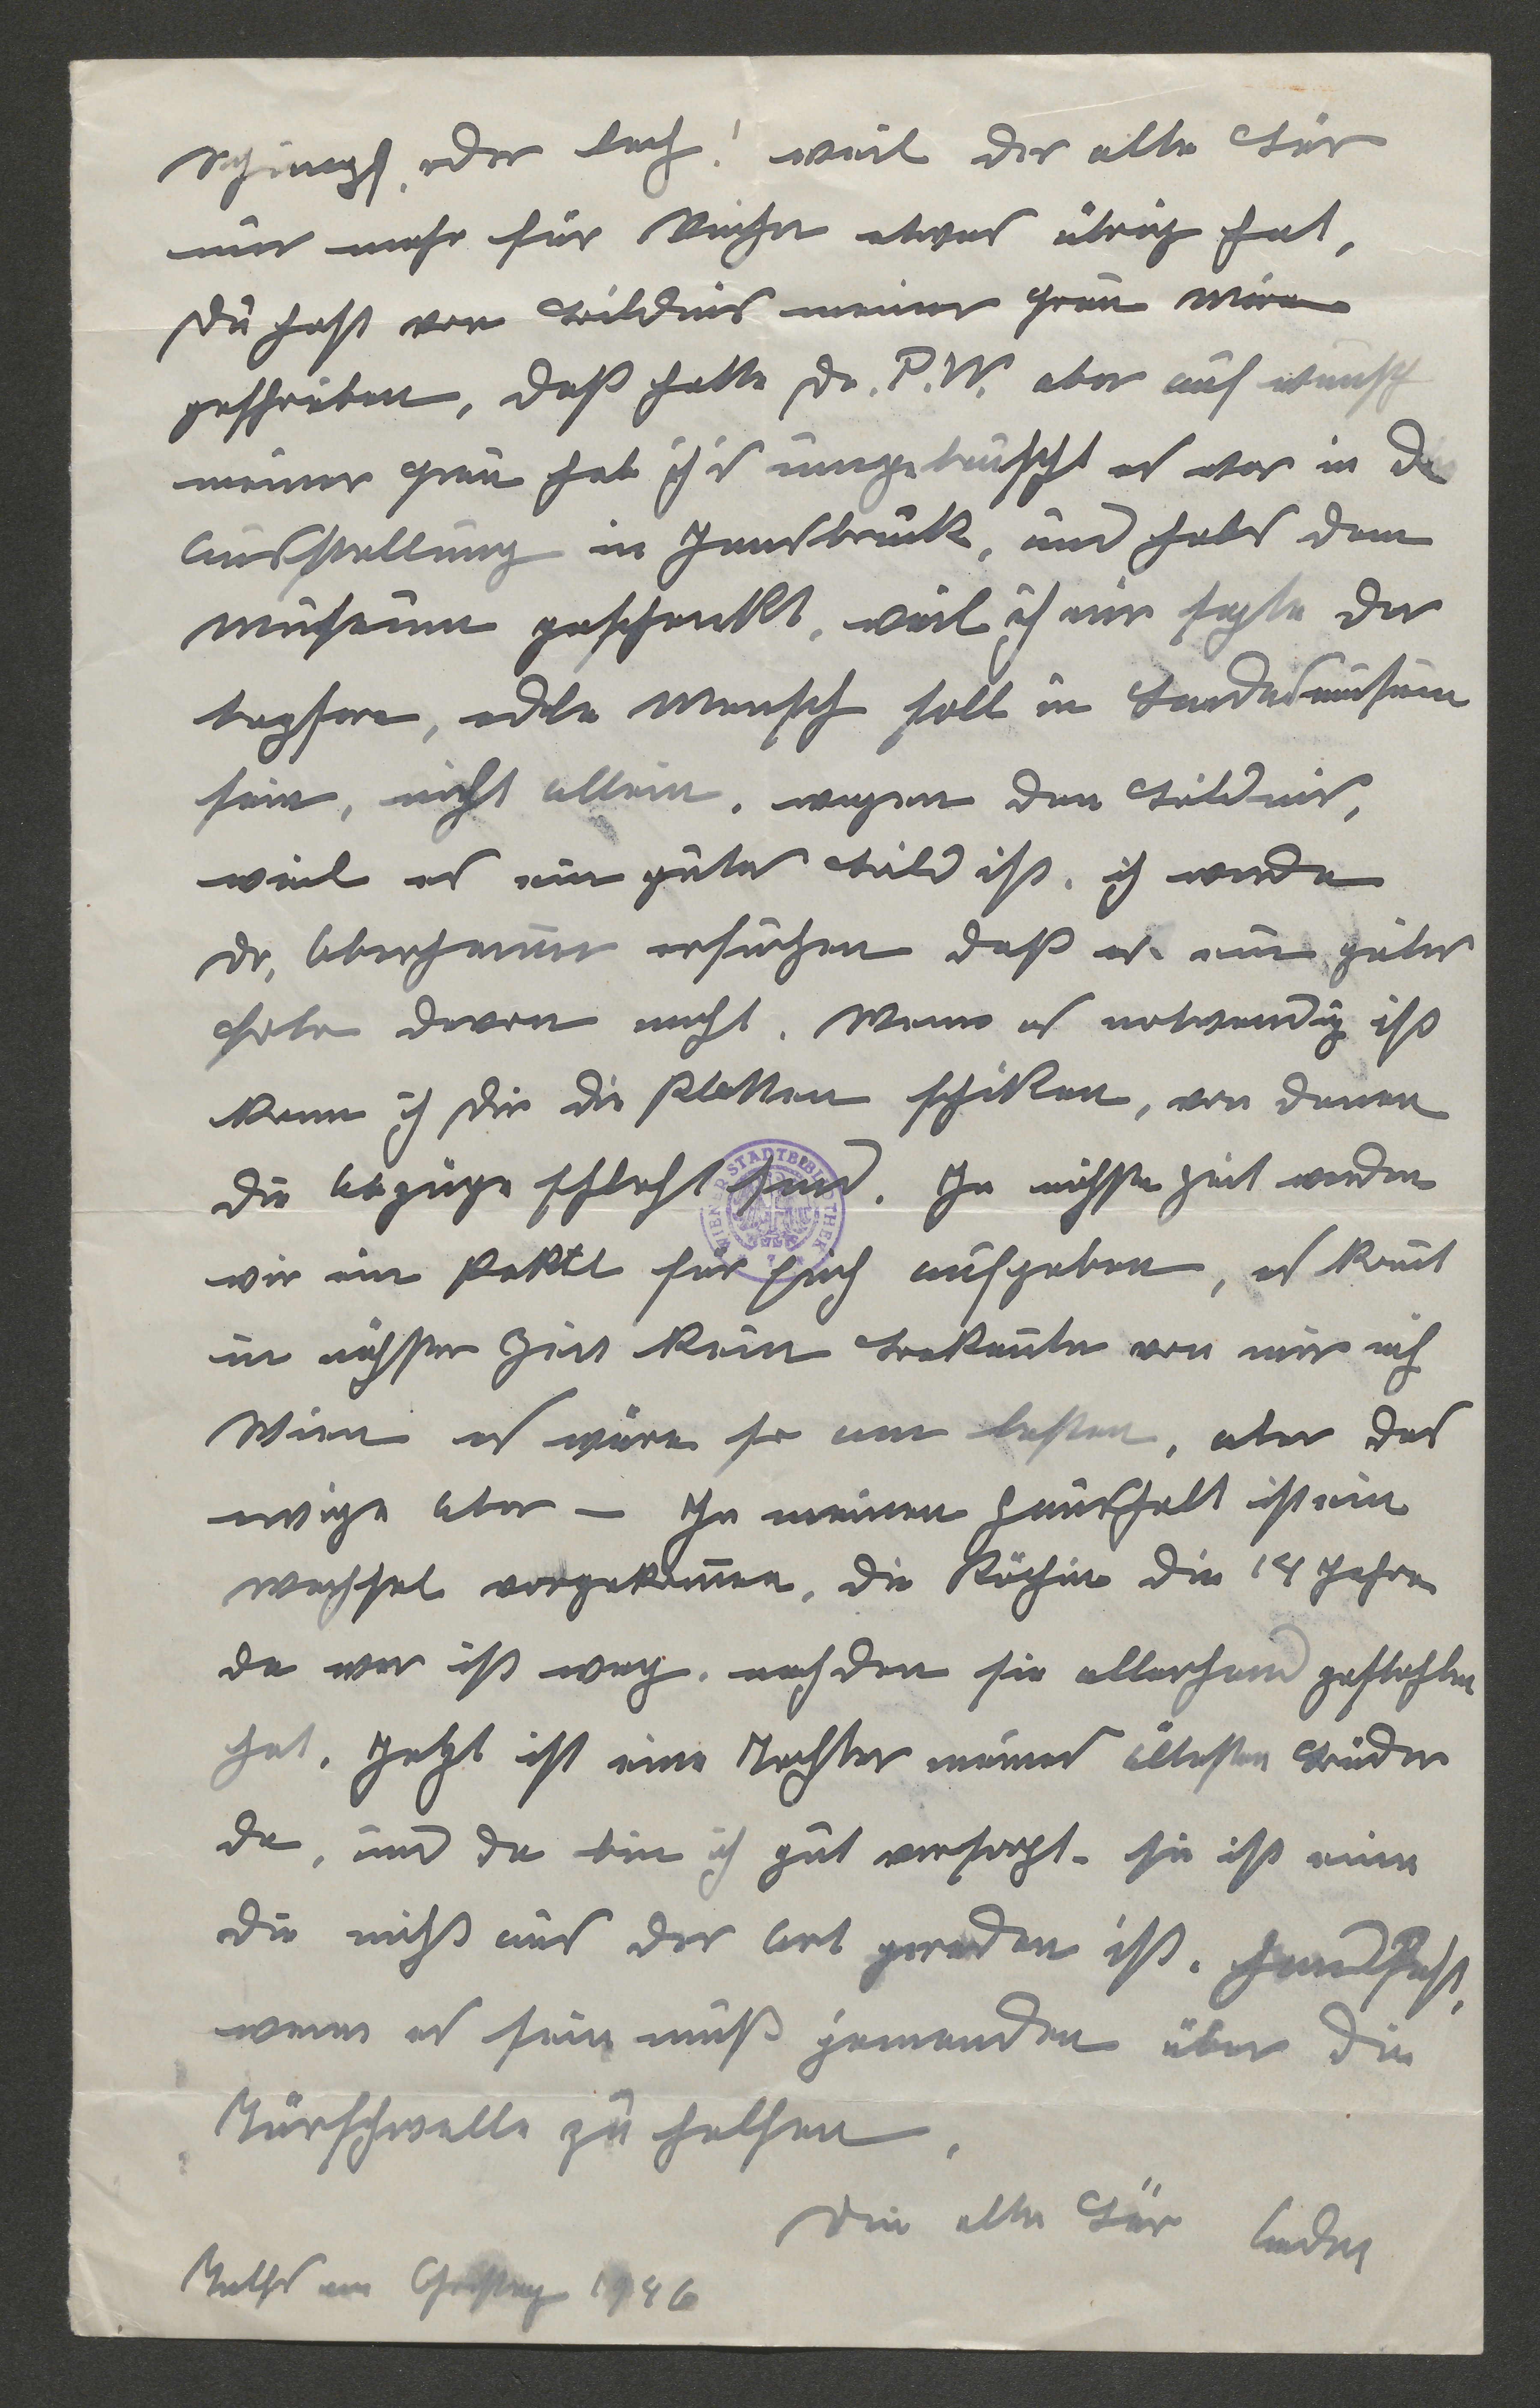 Schimpf, oder lach! weil der alte Bär
nur mehr für Bücher etwas übrig hat,
Du hast von Bildnis meiner Frau Mina
geschrieben, daß hatte Dr. P.W. aber auf wunsch
meiner Frau hab ich's umgetauscht es war in der
Ausstellung in Innsbruck, und habs dem
Museum geschenkt, weil ich mir sagte der
tapfere, edle Mensch soll in Landesmuseum
sein, nicht allein, wegen den Bildnis,
weil es ein gutes Bild ist. ich werde
Dr. Oberhammer ersuchen daß er ein gutes
Foto davon macht. Wenn es notwendig ist
kann ich Dir die Platten schiken, von denen
die Abzüge schlecht sind. In nächste Zeit werden
wir ein Paktl für Euch aufgeben, es komt
in nächster Zeit kein Bekannter von mir nach
Wien es wäre so am besten, aber das
ewige Aber — In meinen Haushalt ist ein
Wechsel vorgekommen, die Köchin die 14 Jahre
da war ist weg. nachdem sie allerhand gestohlen
hat. Jetzt ist eine Tochter meines ältesten Bruder
da, und da bin ich gut versorgt. sie ist eine
die nicht aus der Art geraden ist. Handfest,
wenn es sein muß jemanden über die
Türschwelle zu helfen.
Dein alter Bär
1946
WIENER STADTBIBLIOTHEK